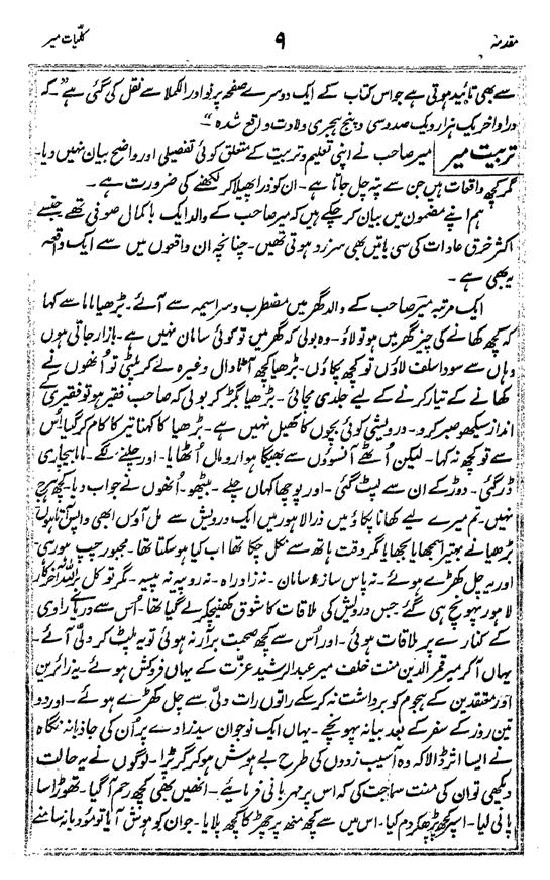 مقدمہ ۹ کلیات میر
سے بھی تائید ہوتی ہے جو اس کتاب کے ایک دوسرے صفحہ پر نوادر الکملا سے نقل کی گئی ہے" کہ
در اواخر یک ہزار و یک صد و سی و پنج ہجری ولادت واقع شدہ"
تربیت میر میر صاحب نے اپنی تعلیم و تربیت کے متعلق کوئی تفصیلی اور واضح بیان نہیں دیا۔
مگر کچھ واقعات ہیں جن سے پتہ چل جاتا ہے۔ ان کو ذرا پھیلا کر لکھنے کی ضرورت ہے۔
ہم اپنے مضمون میں بیان کر چکے ہیں کہ میر صاحب کے والد ایک با کمال صوفی تھے جنسے
اکثر خرق عادات کی سی باتیں بھی سرزد ہوتی تھیں۔ چنانچہ ان واقعوں میں سے ایک واقعہ
یہ بھی ہے۔
ایک مرتبہ میر صاحب کے والد گھر میں مضطرب و سراسیمہ سے آئے۔ بڑھیا ماما سے کہا
کہ کچھ کھانے کی چیز گھر میں ہو تو لاؤ۔ وہ بولی کہ گھر میں تو کوئی سامان نہیں ہے۔ بازار جاتی ہوں
وہاں سے سودا سلف لاؤں تو کچھ پکاؤں۔ بڑھیا کچھ آٹا دال وغیرہ لے کر پلٹی تو اُنھوں نے
کھانے کے تیار کرنے کے لیے جلدی مچائی۔ بڑھیا بگڑ کر بولی کہ صاحب فقیر ہو تو فقیری کے
انداز سیکھو صبر کرو۔ درویشی کوئی بچوں کا کھیل نہیں ہے۔ بڑھیا کا کہنا تیر کا کام کر گیا اُس
سے تو کچھ نہ کہا۔ لیکن اُٹھے آنسوؤں سے بھیگا ہوا رومال اُٹھایا۔ اور چلنے لگے۔ ماما بیچاری
ڈر گئی۔ دوڑ کے ان سے لپٹ گئی۔ اور پوچھا کہاں چلے۔ بیٹھو۔ اُنھوں نے جواب دیا۔ کچھ ہرج
نہیں۔ تم میرے لیے کھانا پکاؤ میں ذرا لاہور میں ایک درویش سے مل آؤں ابھی واپس آتا ہوں
بڑھیا نے بہتیرا سمجھایا بجھایا مگر وقت ہاتھ سے نکل چکا تھا اب کیا ہو سکتا تھا۔ مجبور چپ ہو رہی
اور یہ چل کھڑے ہوئے۔ نہ پاس ساز و سامان۔ نہ زاد راہ۔ نہ روپیہ نہ پیسہ۔ مگر توکل براللہ آخر کار
لاہور پہونچ ہی گئے جس درویش کی ملاقات کا شوق کھینچ کر لے گیا تھا۔ اُس سے دریائے راوی
کے کنارے پر ملاقات ہوئی۔ اور اُس سے کچھ صحبت برآر نہ ہوئی تو یہ پلٹ کر دلّی آئے۔
یہاں آکر میر قمر الدین منت خلف میر عبد الرشید عزّت کے یہاں فروکش ہوئے یہ زائرین
اور معتقدین کے ہجوم کو برداشت نہ کر سکے راتوں رات دلّی سے چل کھڑے ہوئے۔ اور دو
تین روز کے سفر کے بعد بیانہ پہونچے۔ یہاں ایک نوجوان سید زادے پر اُن کی جاذبانہ نگاہ
نے ایسا اثر ڈالا کہ وہ آسیب زدوں کی طرح بے ہوش ہو کر گر پڑا۔ لوگوں نے یہ حالت
دیکھی تو ان کی منت سماجت کی کہ اس پر مہربانی فرمائیے۔ انھیں بھی کچھ رحم آگیا۔ تھوڑا سا
پانی لیا۔ اسپر کچھ پڑھکر دم کیا۔ اس میں سے کچھ منھ پر چھڑکا کچھ پلایا۔ جوان کو ہوش آیا تو مؤدبانہ سامنے